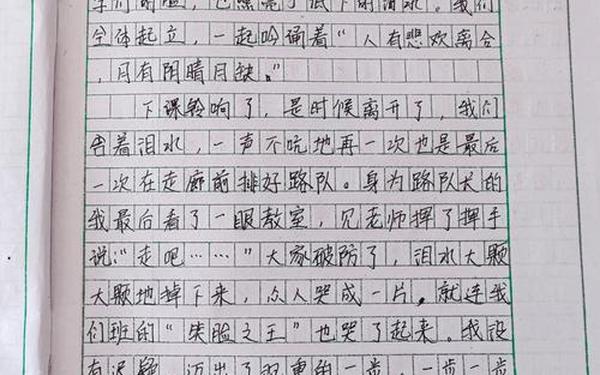 学们的脸，也照亮了低下的泪水。我们
全体起立，一起吟诵着“人有悲欢离合
，月有阴晴月缺。”
下课铃响了，是时候离开了，我们
含着泪水，一声不吭地再一次也是最后
一次在走廊前排好路队。身为路队长的
我最后看了一眼教室，见老师挥了挥手
说：“走吧……”大家破防了，泪水大颗
大颗地掉下来，众人哭成一片。就连我
们班的“笑脸之王”也哭了起来。我没
有迟疑，迈出了沉重的一步，一步一步